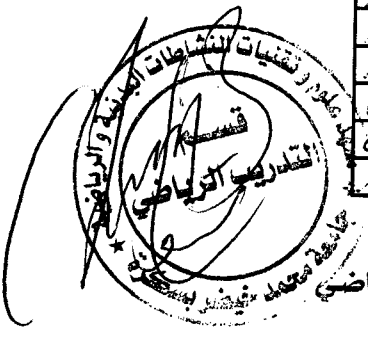 علوم و تقنيات النشاطات البدنية و الرياضية
قسم
التدريب الرياضي
جامعة محمد خيضر بسكرة
اضي